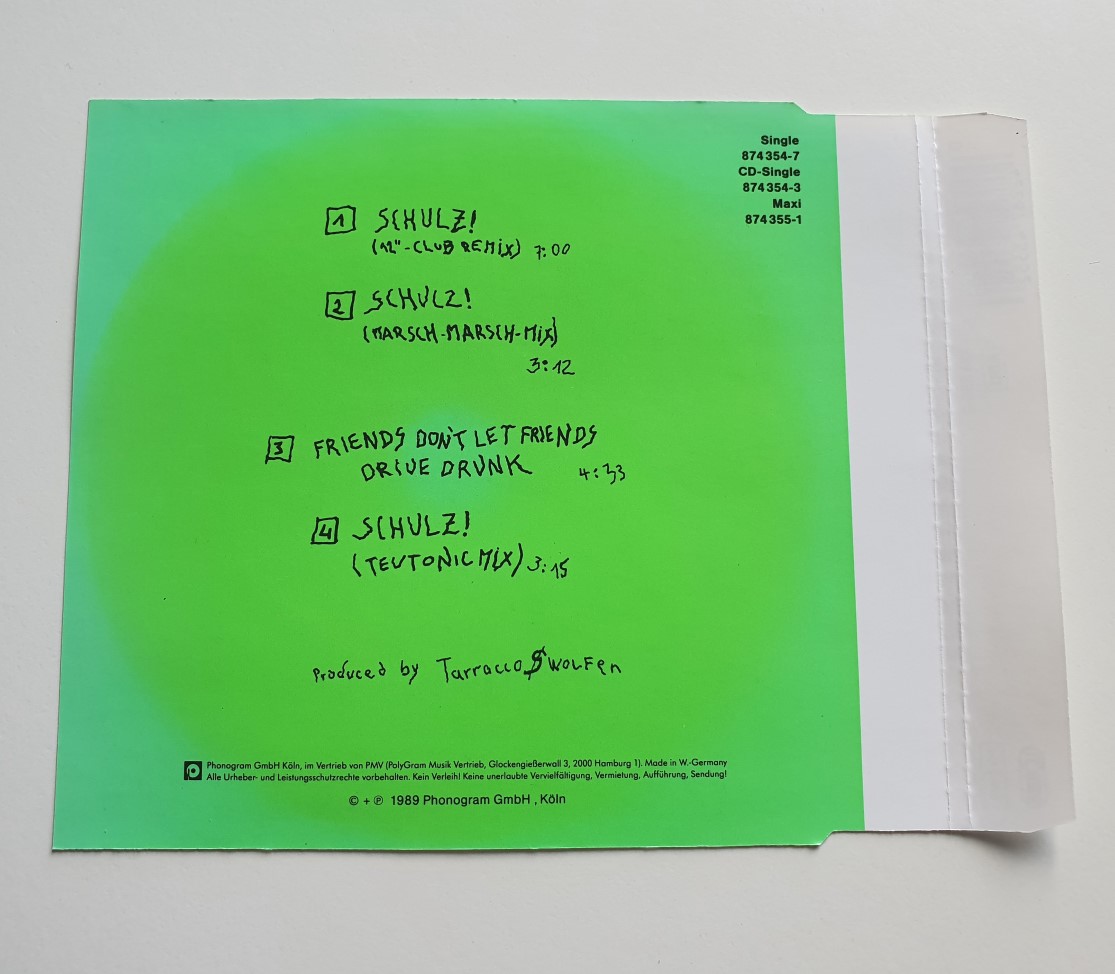 Single
874 354-7
CD-Single
874 354-3
Maxi
874 355-1
1 SCHULZ!
(12"-CLUB REMiX) 7:00
2 SCHULZ!
(MARSCH-MARSCH-MiX)
3:12
3 FRIENDS DON'T LET FRIENDS
DRIVE DRUNK 4:33
4 SCHULZ!
(TEUTONIC MiX) 3:15
Produced by Tarracco $ WOLFEn
Phonogram GmbH Köln, im Vertrieb von PMV (PolyGram Musik Vertrieb, Glockengießerwall 3, 2000 Hamburg 1). Made in W.-Germany
Alle Urheber- und Leistungsschutzrechte vorbehalten. Kein Verleih! Keine unerlaubte Vervielfältigung, Vermietung, Aufführung, Sendung!
© + ℗ 1989 Phonogram GmbH , Köln